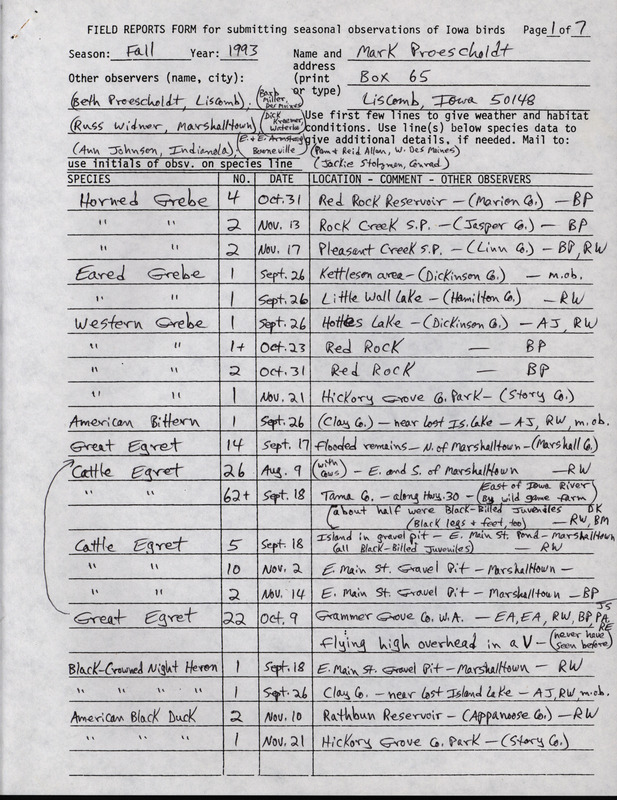 FIELD REPORTS FORM for submitting seasonal observations of Iowa birds Page 1 of 7
Season: Fall Year: 1993 Name and address (print or type) Mark Proescholdt
Box 65
Liscomb, Iowa 50148
Other observers (name, city):
(Beth Proescholdt, Liscomb), (Barb Miller, Des Moines)
(Russ Widner, Marshalltown) (Dick Kraemer, Waterloo)
(Ann Johnson, Indianola), (E. & E. Armstrong, Booneville)
(Pam & Reid Allen, W. Des Moines)
(Jackie Stolzman, Conrad)
Use first few lines to give weather and habitat conditions. Use line(s) below species data to give additional details, if needed. Mail to:
use initials of obsv. on species line
SPECIES NO. DATE LOCATION - COMMENT - OTHER OBSERVERS
Horned Grebe 4 Oct. 31 Red Rock Reservoir - (Marion Co.) - BP
" " 2 Nov. 13 Rock Creek S.P. - (Jasper Co.) - BP
" " 2 Nov. 17 Pleasant Creek S.P. - (Linn Co.) - BP, RW
Eared Grebe 1 Sept. 26 Kettleson area - (Dickinson Co.) - m.ob.
" " 1 Sept. 26 Little Wall Lake - (Hamilton Co.) - RW
Western Grebe 1 Sept. 26 Hottes Lake - (Dickinson Co.) - AJ, RW
" " 1+ Oct. 23 Red Rock - BP
" " 2 Oct. 31 Red Rock - BP
" " 1 Nov. 21 Hickory Grove Co. Park - (Story Co.)
American Bittern 1 Sept. 26 (Clay Co.) - near Lost Is. Lake - AJ, RW, m.ob.
Great Egret 14 Sept. 17 flooded remains - N. of Marshalltown - (Marshall Co.)
Cattle Egret 26 Aug. 9 (with cows) - E. and S. of Marshalltown - RW
" " 62+ Sept. 18 Tama Co. - along Hwy. 30 - (East of Iowa River) (By wild game farm)
(about half were Black-Billed Juveniles (Black legs & feet, too) - RW, BM DK
Cattle Egret 5 Sept. 18 Island in gravel pit - E. Main St. Pond - Marshalltown
(all Black-Billed Juveniles) - RW
" " 10 Nov. 2 E. Main St. Gravel Pit - Marshalltown -
" " 2 Nov. 14 E. Main St. Gravel Pit - Marshalltown - BP
Great Egret 22 Oct. 9 Grammer Grove Co. W.A. - EA, EA, RW, BP, PA, JS RE
Flying high overhead in a V - (never have seen before)
Black-Crowned Night Heron 1 Sept. 18 E. Main St. Gravel Pit - Marshalltown - RW
" " " " 1 Sept. 26 Clay Co. - near Lost Island Lake - AJ, RW, m.ob.
American Black Duck 2 Nov. 10 Rathbun Reservoir - (Appanoose Co.) - RW
" " " 1 Nov. 21 Hickory Grove Co. Park - (Story Co.)